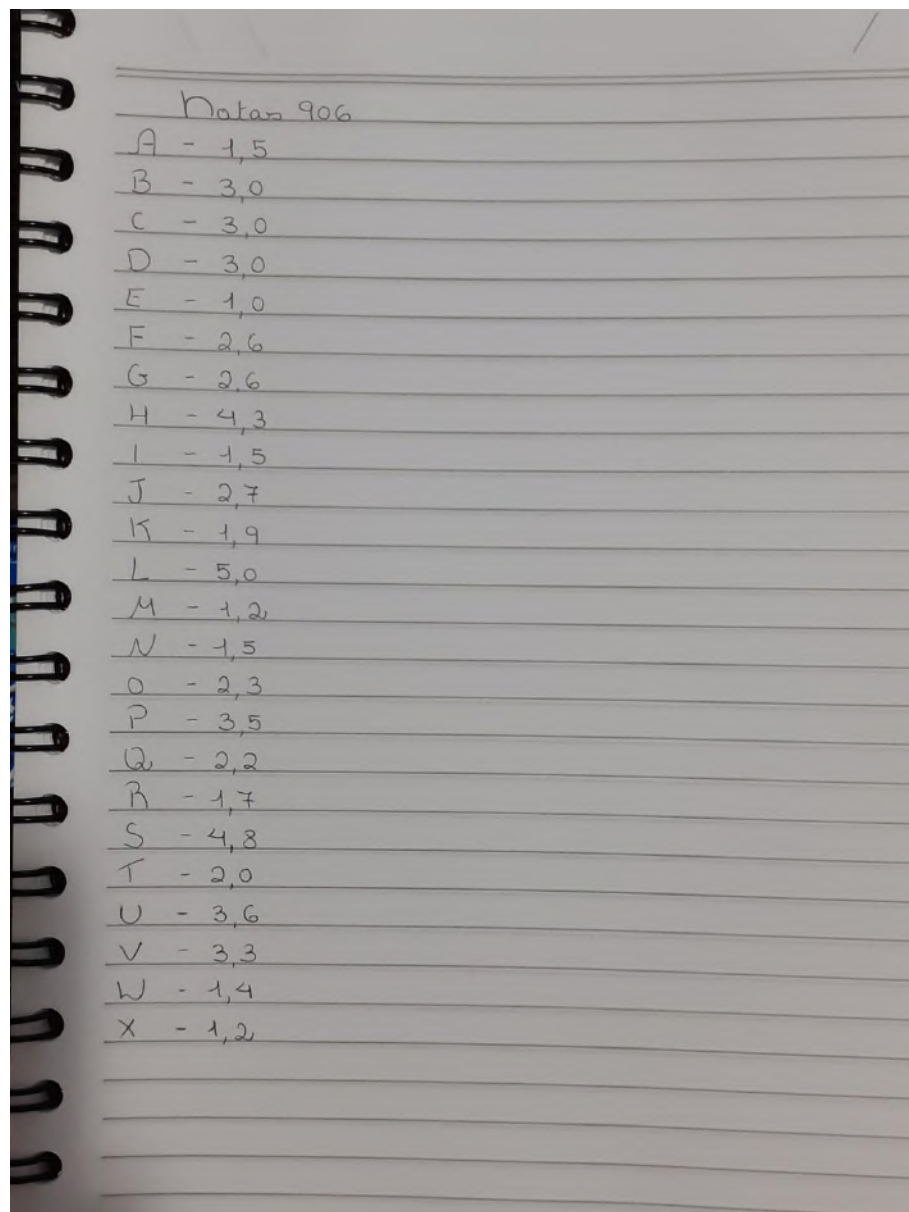 Notas 906
A - 1,5
B - 3,0
C - 3,0
D - 3,0
E - 1,0
F - 2,6
G - 2,6
H - 4,3
I - 1,5
J - 2,7
K - 1,9
L - 5,0
M - 1,2
N - 1,5
O - 2,3
P - 3,5
Q - 2,2
R - 1,7
S - 4,8
T - 2,0
U - 3,6
V - 3,3
W - 1,4
X - 1,2